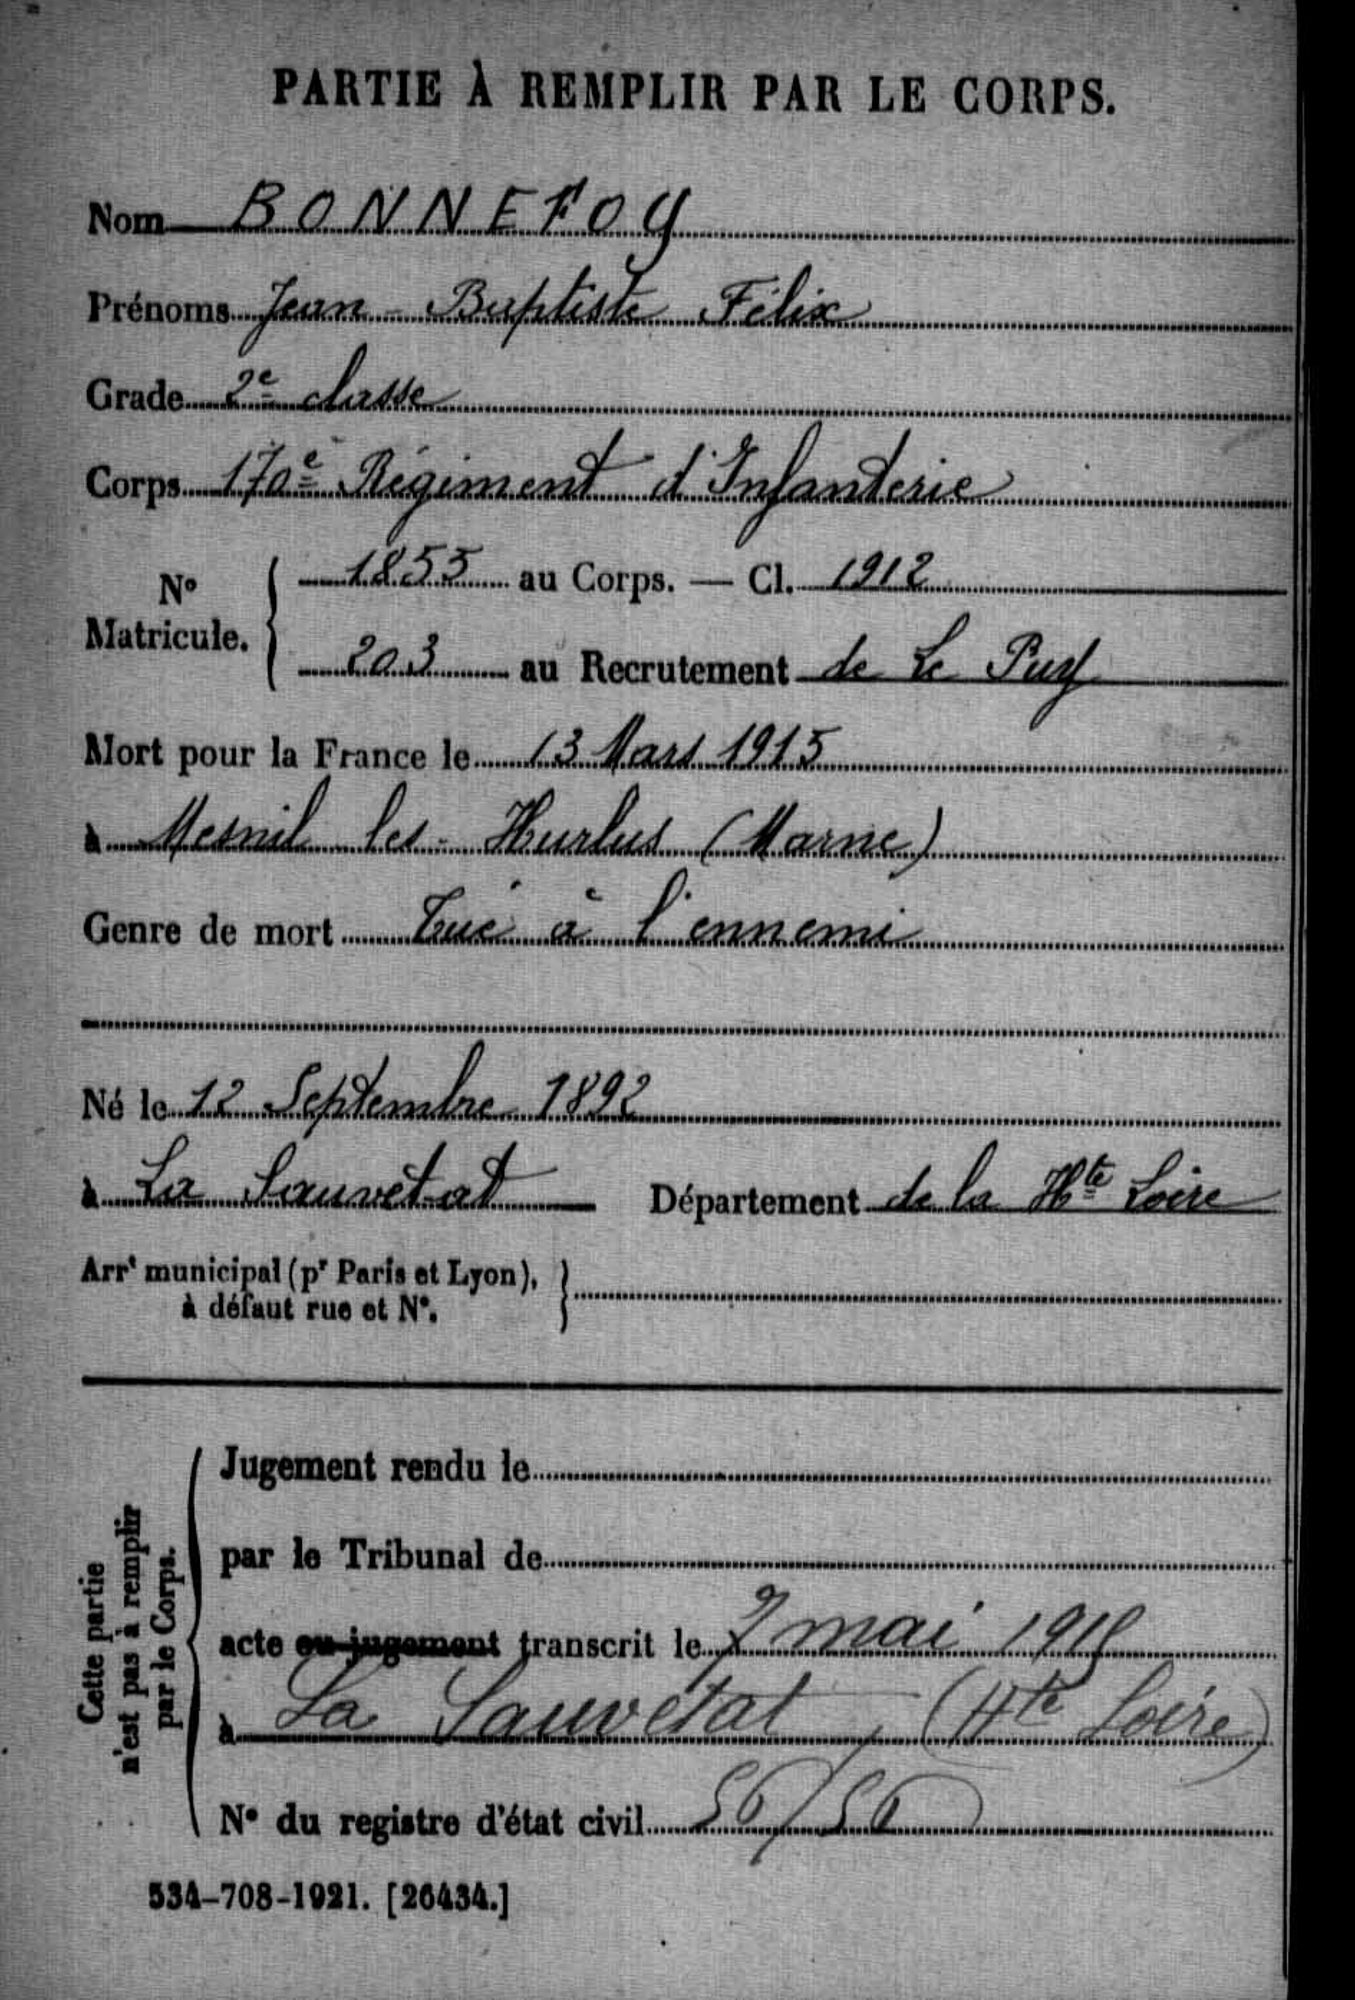 PARTIE À REMPLIR PAR LE CORPS.
Nom BONNEFOY
Prénoms Jean-Baptiste Félix
Grade 2e classe
Corps 170e Régiment d'Infanterie
N° Matricule. 1855 au Corps. — Cl. 1912
203 au Recrutement de Le Puy
Mort pour la France le 13 Mars 1915
à Mesnil les-Hurlus (Marne)
Genre de mort Tué à l'ennemi
Né le 12 Septembre 1892
à La Sauvetat Département de la Hte Loire
Arrt municipal (pr Paris et Lyon),
à défaut rue et N°.
Cette partie
n'est pas à remplir
par le Corps.
Jugement rendu le
par le Tribunal de
acte ou jugement transcrit le 7 mai 1915
à La Sauvetat, (Hte Loire)
N° du registre d'état civil 56/56
534-708-1921. [26434.]